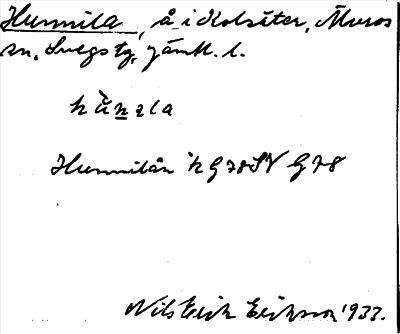 Hunnila, å i Kolsäter, Älvros
sn, Svegs tg, Jämtl. l.
hùn̲ɪla
Hunnilån k G78SV G78
Nils Erik Eriksson 1933.